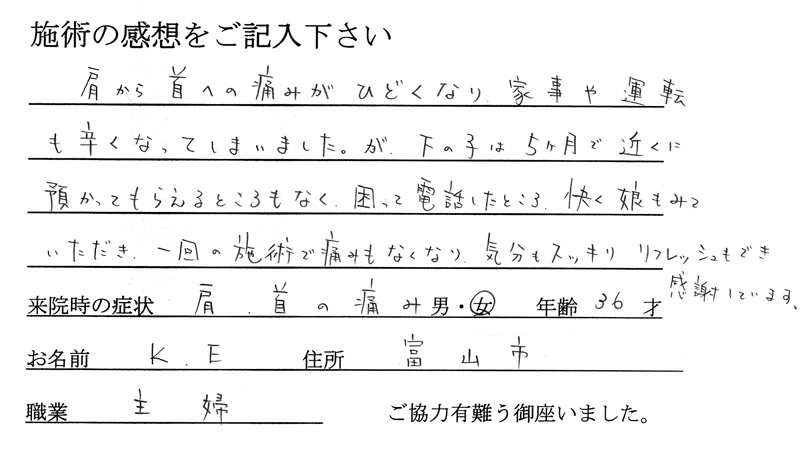 施術の感想をご記入下さい
肩から首への痛みがひどくなり、家事や運転
も辛くなってしまいました。が、下の子は5ヶ月で近くに
預かってもらえるところもなく、困って電話したところ、快く娘もみて
いただき、一回の施術で痛みもなくなり、気分もスッキリ リフレッシュもでき
感謝しています、
来院時の症状 肩、首の痛み 男・女 年齢 36 才
お名前 K.E 住所 富山市
職業 主婦 ご協力有難う御座いました。